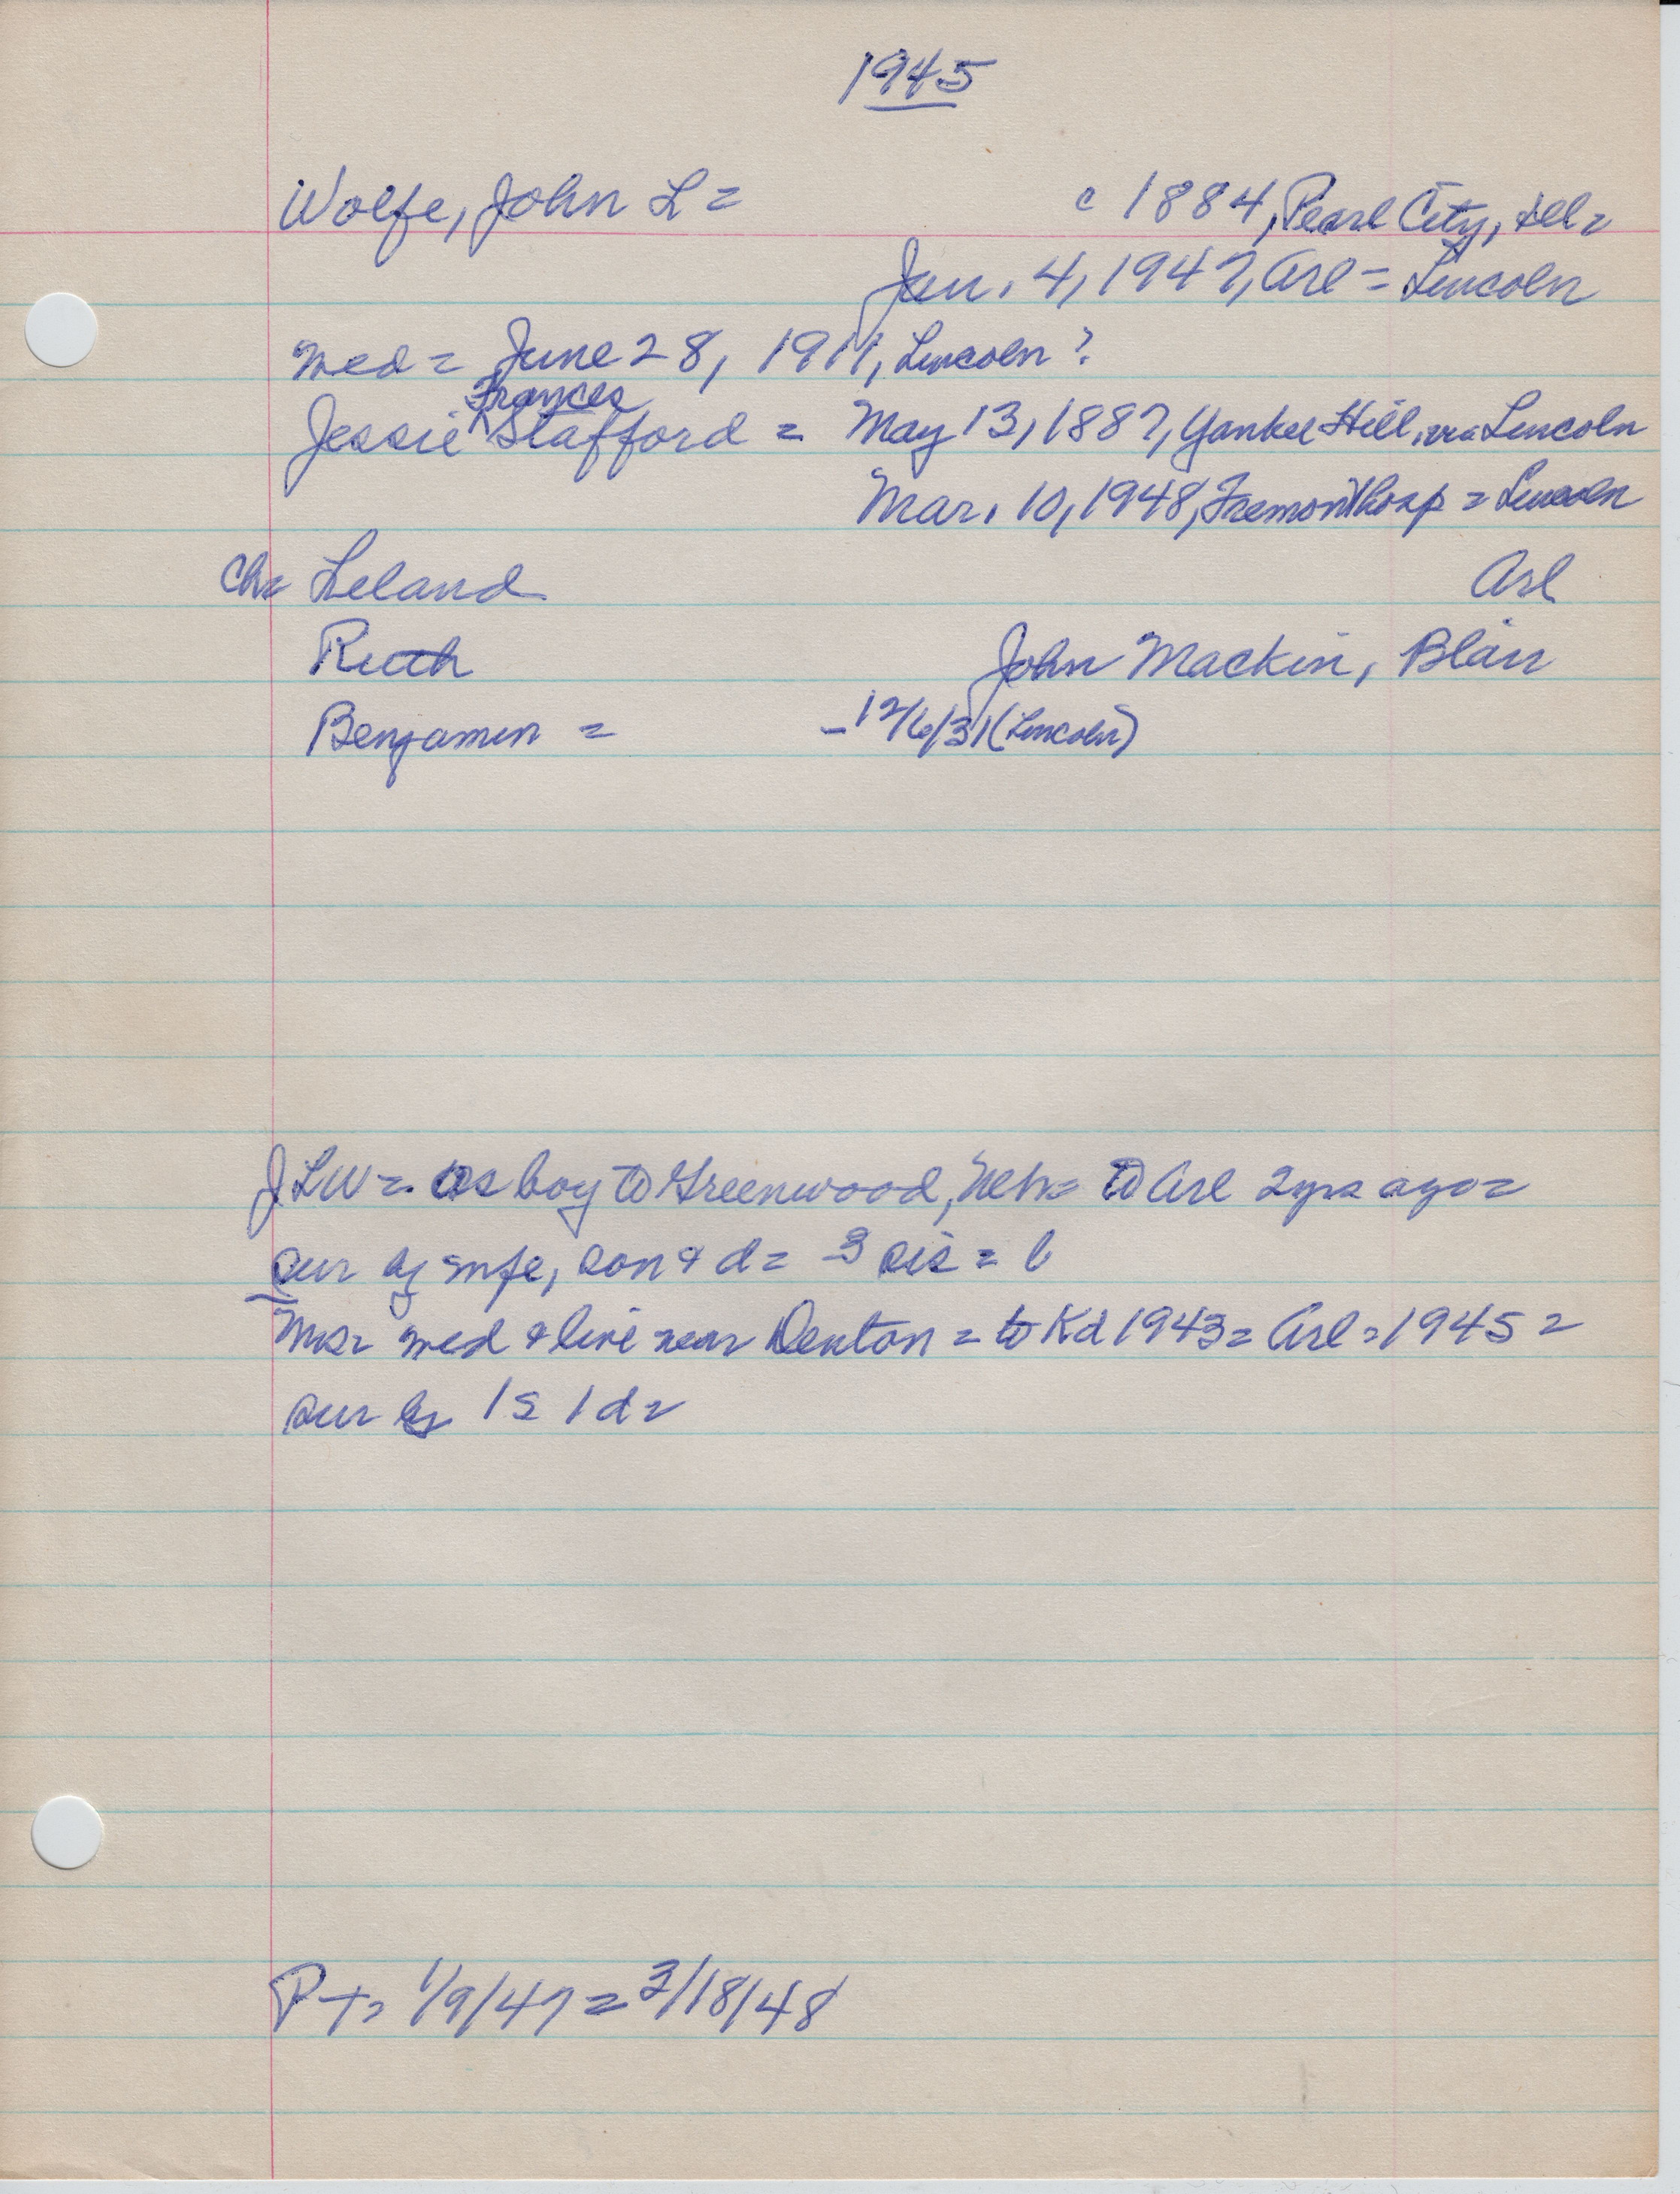 1945
Wolfe, John L = c 1884, Pearl City, Ill =
Jan. 4, 1947, Arl = Lincoln
med = June 28, 1911, Lincoln?
Frances
Jessie ^ Stafford = May 13, 1887, Yankee Hill, via Lincoln
Mar. 10, 1948, Fremont hosp = Lincoln
Ch= Leland Arl
Ruth John Mackin, Blair
Benjamin = - 12/6/31 (Lincoln)
JLW = as boy to Greenwood, Neb = to Arl 2 yrs ago =
sur by wife, son & d = 3 sis = b
Mrs = med & live near Denton = to Kd 1943 = Arl = 1945 =
sur by 1 s 1 d =
PT = 1/9/47 = 3/18/48